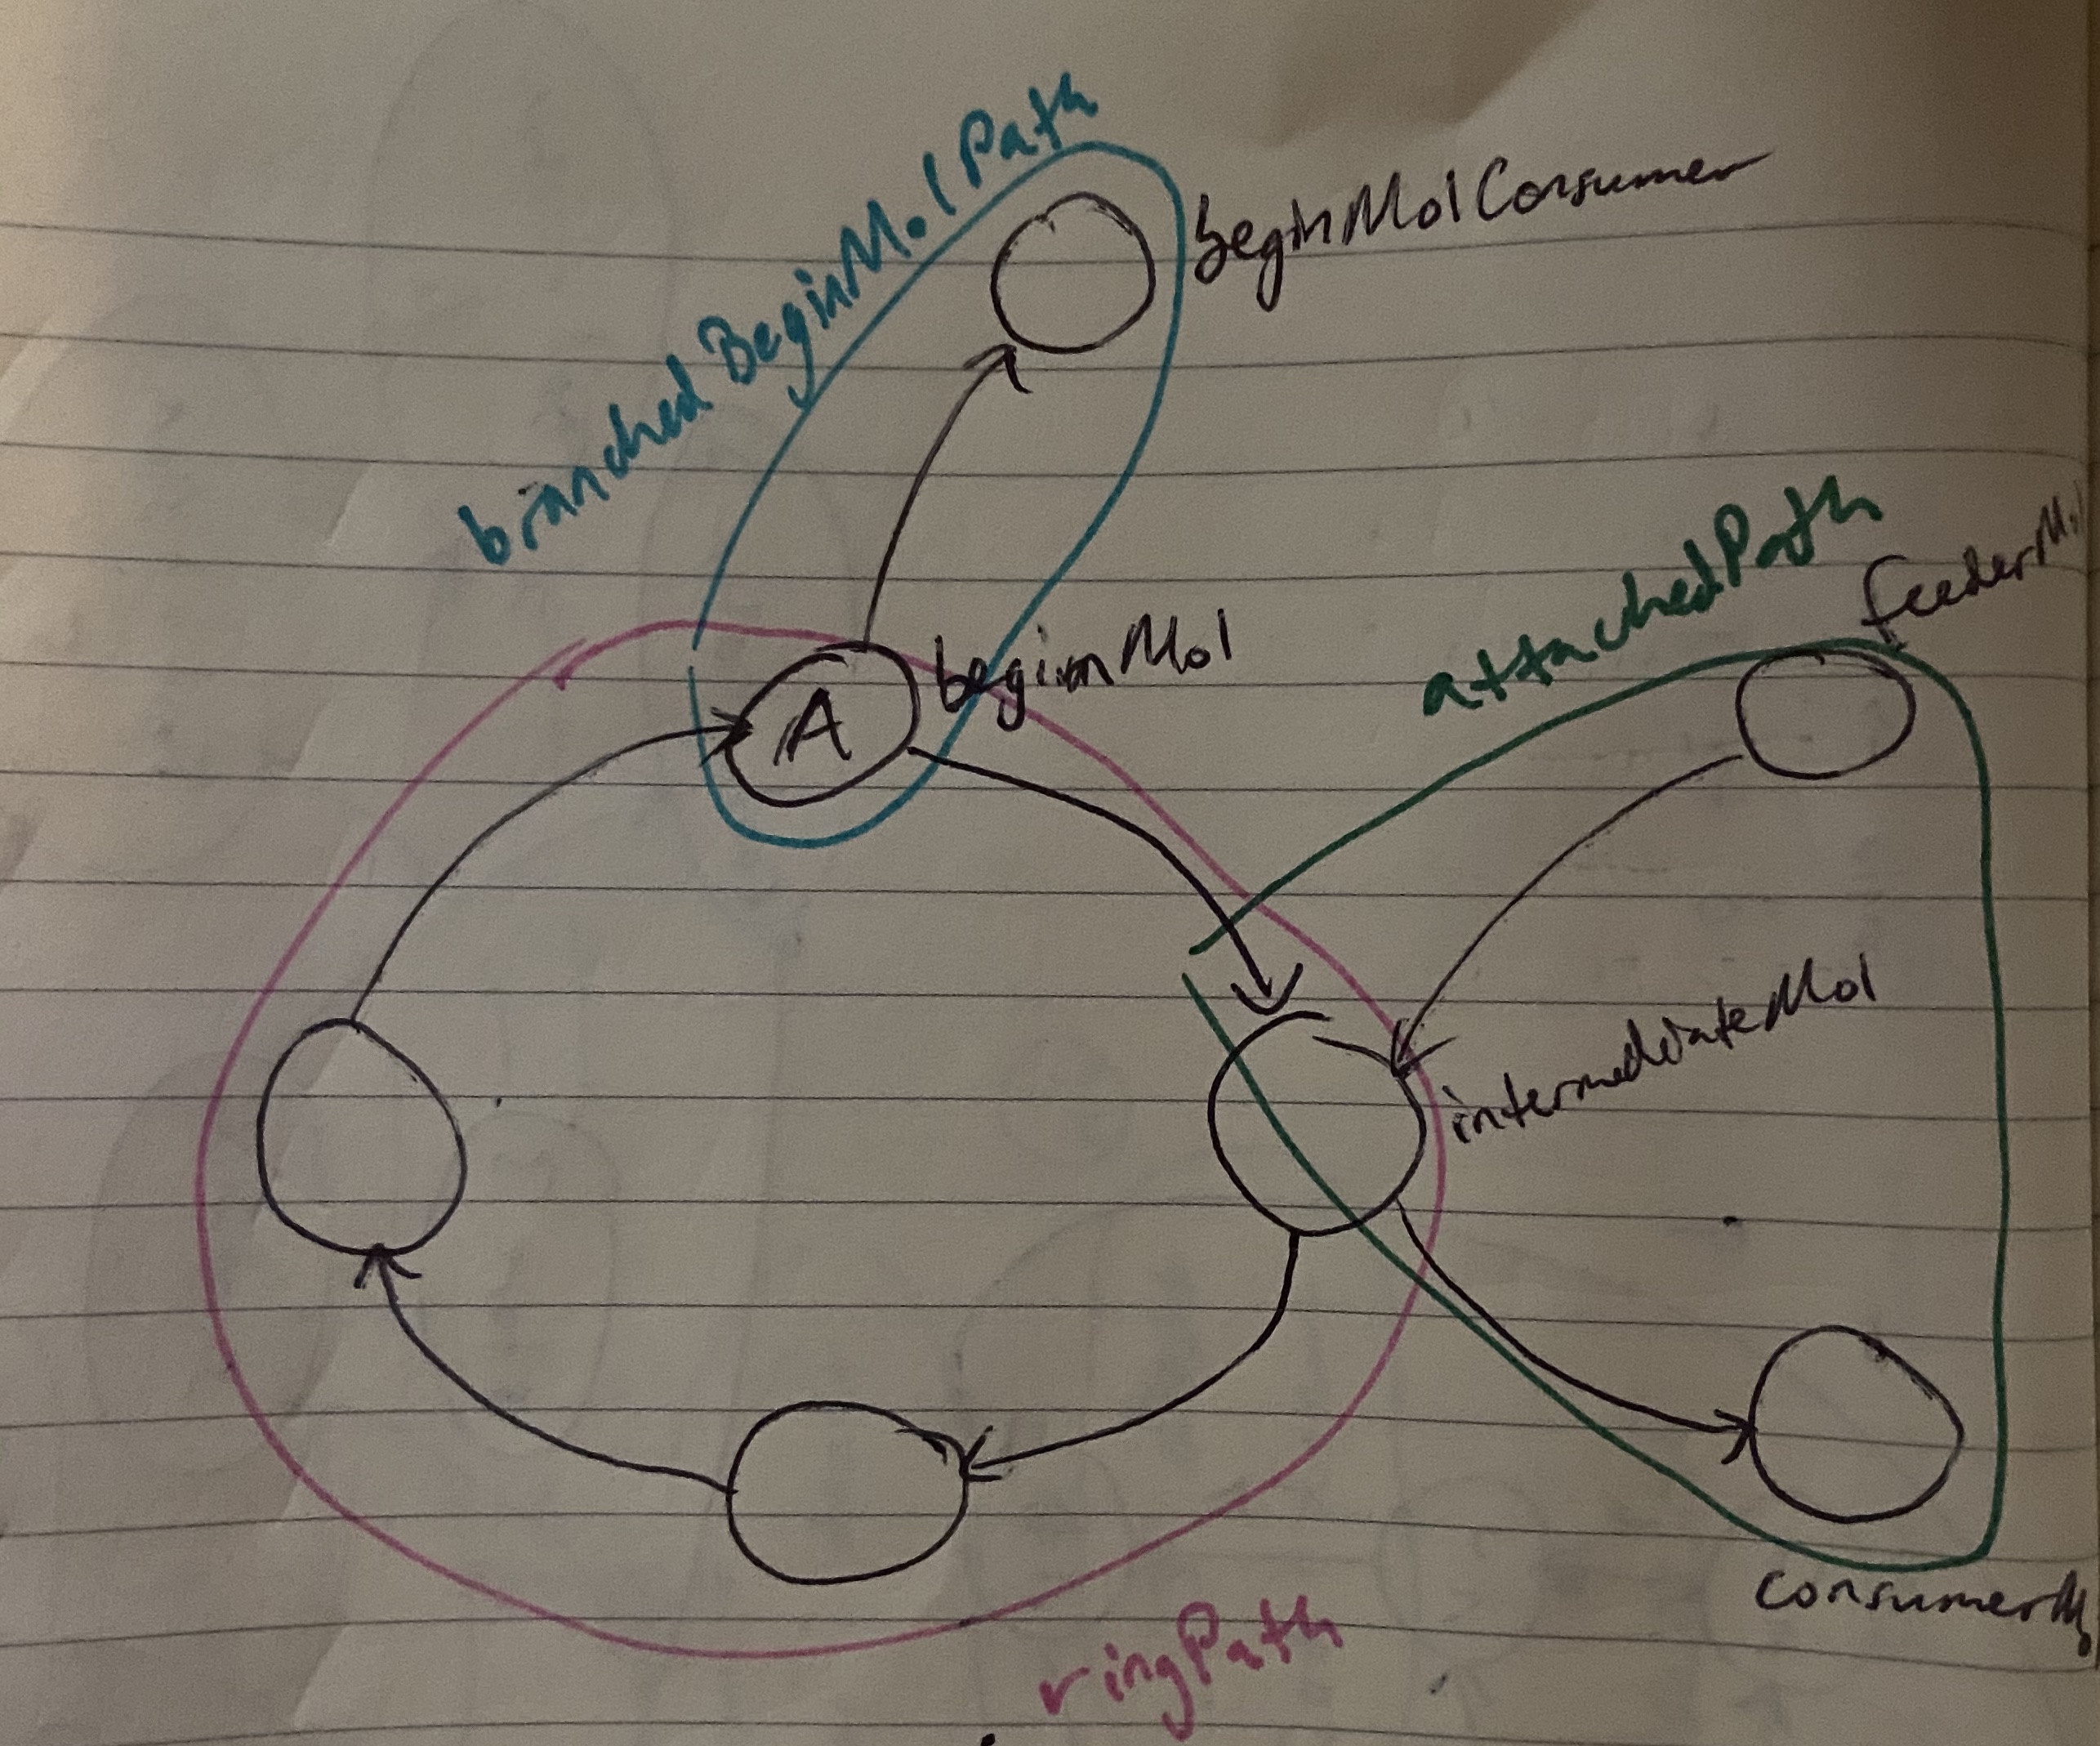 branchedBeginMolPath
beginMolConsumer
attachedPath
feederMol
beginMol
A
intermediateMol
consumerM
ringPath